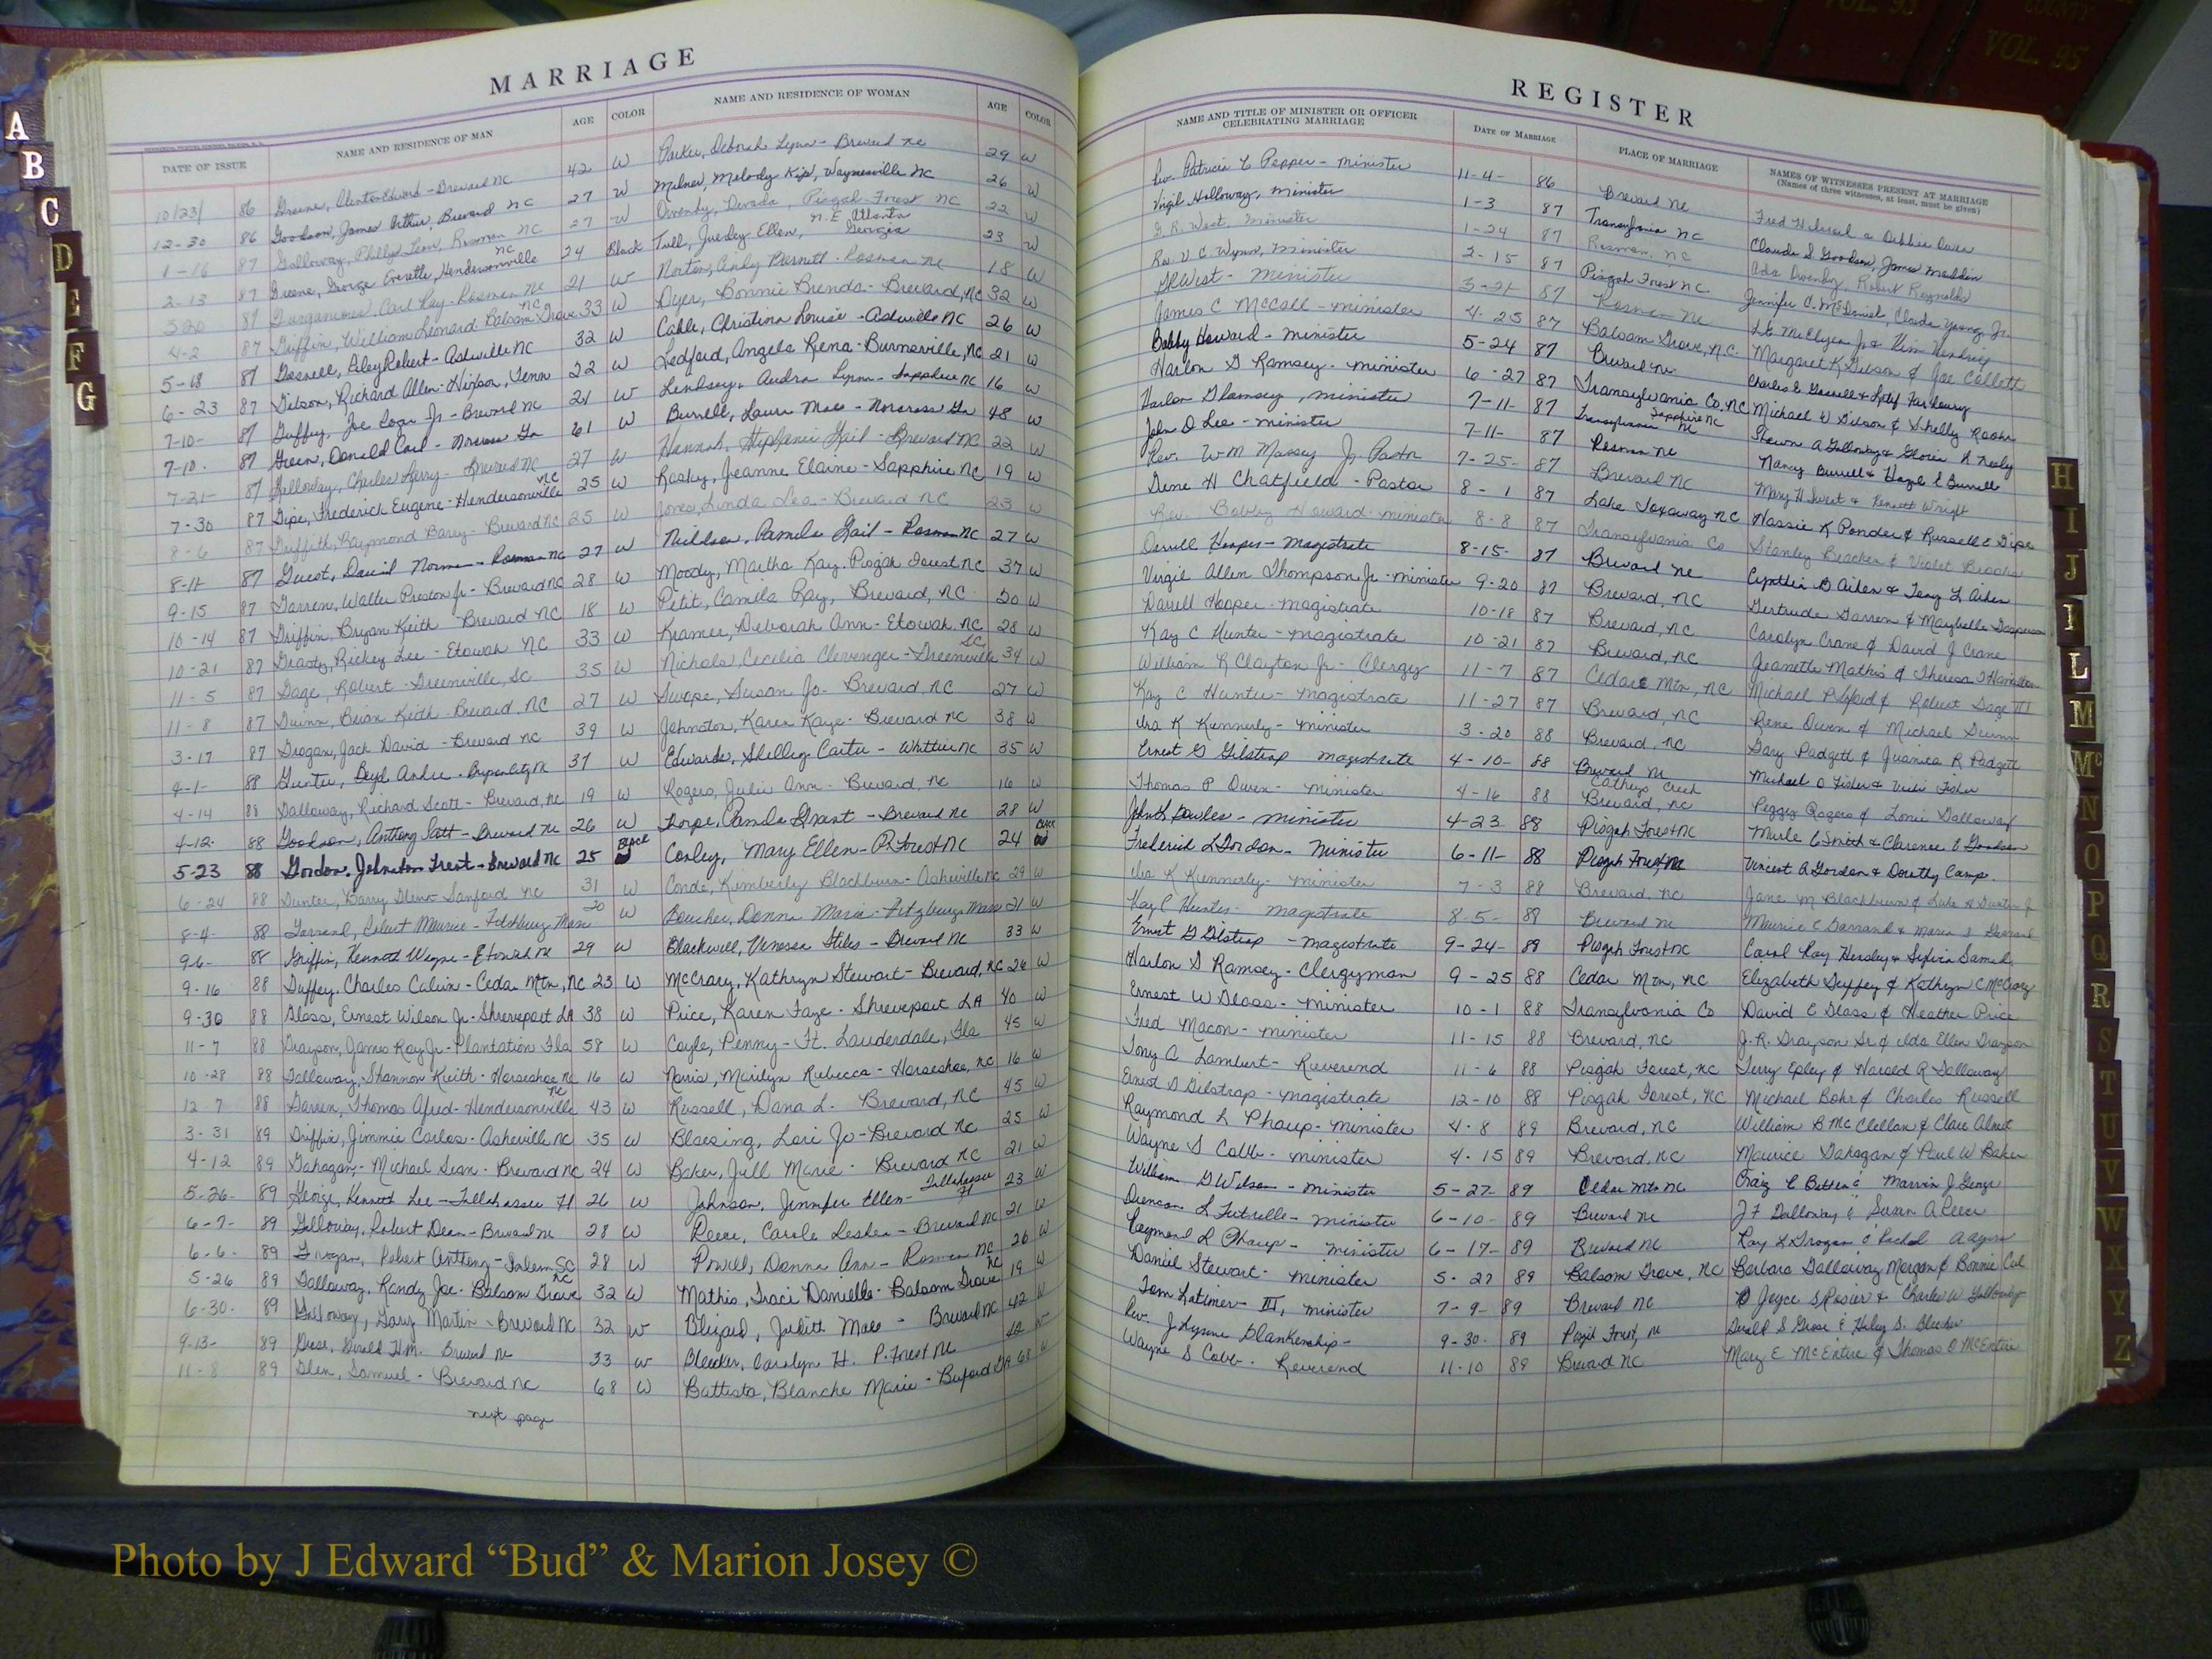 COUNTY
VOL. 93
VOL. 95
MARRIAGE
REGISTER
DATE OF ISSUE NAME AND RESIDENCE OF MAN AGE COLOR NAME AND RESIDENCE OF WOMAN AGE COLOR
NAME AND TITLE OF MINISTER OR OFFICER CELEBRATING MARRIAGE DATE OF MARRIAGE PLACE OF MARRIAGE NAMES OF WITNESSES PRESENT AT MARRIAGE
(Names of three witnesses, at least, must be given)
10/23/ 86 Greene, Clinton Edward - Brevard NC 42 W Parker, Deborah Lynn - Brevard NC 29 W
12-30 86 Goodson, James Arthur, Brevard NC 27 W Milner, Melody Kip, Waynesville NC 26 W
1-16 87 Galloway, Phillip Leon, Rosman NC 27 W Owenby, Devada, Pisgah Forest NC 22 W
2-13 87 Greene, George Everette, Hendersonville NC 24 Black Tull, Ellen, N.E. Atlanta Georgia 23 W
3-20 87 Carl Ray - Rosman NC 21 W Norton, Burnett - Rosman NC 18 W
4-2 87 Griffin, William Leonard Balsam Grove NC 33 W Dyer, Bonnie Brenda - Brevard, NC 32 W
5-18 87 Gosnell, Robert - Asheville NC 32 W Cable, Christina Louise - Asheville NC 26 W
6-23 87 Gilson, Richard Allen - Hixson, Tenn 22 W Ledford, Angela Rena - Burnsville, NC 21 W
7-10- 87 Guffey, Joe Logan Jr - Brevard NC 21 W Lindsey, Audra Lynn - Sapphire NC 16 W
7-10- 87 Green, Donald Carl - Norcross Ga 61 W Burrell, Laura Mae - Norcross Ga 48 W
7-21- 87 Galloway, Charles Larry - Brevard NC 27 W Hannah, Stephanie Gail - Brevard NC 22 W
7-30 87 Gipe, Frederick Eugene - Hendersonville NC 25 W Raskey, Jeanne Elaine - Sapphire NC 19 W
8-6 87 Griffith, Raymond Barry - Brevard NC 25 W Jones, Linda Lea - Brevard NC 23 W
8-11 87 Guest, David Norman - Rosman NC 27 W Pamela Gail - Rosman NC 27 W
9-15 87 Garren, Walter Preston Jr - Brevard NC 28 W Moody, Martha Kay. Pisgah Forest NC 37 W
10-14 87 Griffin, Bryan Keith Brevard NC 18 W Petit, Camila Ray, Brevard, NC 20 W
10-21 87 Grasty, Rickey Lee - Etowah NC 33 W Kramer, Deborah Ann - Etowah NC 28 W
11-5 87 Gage, Robert - Greenville, SC 35 W Nichols, Cecilia Clevenger - Greenville SC 34 W
11-8 87 Guinn, Brian Keith - Brevard, NC 27 W Swope, Susan Jo - Brevard, NC 27 W
3-17 87 Grogan, Jack David - Brevard NC 39 W Johnston, Karen Kaye - Brevard NC 38 W
4-1- 88 Gunter, Boyd Andre - 37 W Edwards, Shelley Carter - Whittier NC 35 W
4-14 88 Galloway, Richard Scott - Brevard, NC 19 W Rogers, Julie Ann - Brevard, NC 16 W
4-12- 88 Goodson, Anthony Scott - Brevard NC 26 W Pamela Grant - Brevard NC 28 W
5-23 88 Gordon, Johnston Trent - Brevard NC 25 Black Corley, Mary Ellen - P. Forest NC 24 Black
6-24 88 Gunter, Barry Glenn - Sanford NC 31 W Conde, Kimberly Blackburn - Asheville NC 29 W
8-4- 88 Garrand, Maurice - Fitchburg Mass 20 W Boucher, Donna Maria - Fitzburg Mass 21 W
9-6- 88 Griffin, Kenneth Wayne - Etowah NC 29 W Blackwell, Vanessa Stiles - Brevard NC 33 W
9-16 88 Guffey, Charles Calvin - Cedar Mtn, NC 23 W McCrary, Kathryn Stewart - Brevard, NC 26 W
9-30 88 Glass, Ernest Wilson Jr - Shreveport LA 38 W Price, Karen Faye - Shreveport LA 40 W
11-7 88 Grayson, James Roy Jr - Plantation Fla 58 W Coyle, Penny - Ft. Lauderdale, Fla 45 W
10-28 88 Galloway, Shannon Keith - Horseshoe NC 16 W Norris, Marilyn Rebecca - Horseshoe, NC 16 W
12-7 88 Garren, Thomas Afred - Hendersonville NC 43 W Russell, Dana L. Brevard, NC 45 W
3-31 89 Griffin, Jimmie Carlos - Asheville NC 35 W Blaesing, Lori Jo - Brevard NC 25 W
4-12 89 Gahagan - Michael Sean - Brevard NC 24 W Baker, Jill Marie - Brevard NC 21 W
5-26- 89 George, Kenneth Lee - Tallahassee Fl 26 W Johnson, Jennifer Ellen - Tallahassee Fl 23 W
6-7- 89 Galloway, Robert Dean - Brevard NC 28 W Reece, Carole Leslea - Brevard NC 21 W
6-6- 89 Grogan, Robert Anthony - Salem SC 28 W Powell, Donna Ann - Rosman NC 26 W
5-26 89 Galloway, Randy Joe - Balsam Grove NC 32 W Mathis, Traci Danielle - Balsam Grove NC 19 W
6-30- 89 Galloway, Gary Martin - Brevard NC 32 W Blizard, Judith Mae - Brevard NC 42 W
9-13- 89 Grose, Gerald H.M. Brevard NC 33 W Bleeker, Carolyn H. P. Forest NC 42 W
11-8 89 Glen, Samuel - Brevard NC 68 W Battista, Blanche Marie - Buford GA 68 W
next page
Rev. Patricia C Pepper - Minister 11-4- 86 Brevard NC Fred H & Debbie
Virgil Holloway, Minister 1-3 87 Transylvania NC Claude S Goodson, James Madden
G. R. West, Minister 1-24 87 Rosman, NC Ada Owenby, Robert Reynolds
Rev. V. C. Wynn, Minister 2-15 87 Pisgah Forest NC Jennifer C. McDaniel, Claude Young Jr.
GR West - Minister 3-21 87 Rosman NC
James C McCall - minister 4-25 87 Balsam Grove, N.C. Margaret K Gilson & Joe Collett
Bobby Howard - minister 5-24 87 Brevard NC Charles E Gosnell &
Harlon G Ramsey - minister 6-27 87 Transylvania Co, NC Michael W Gilson & Shelly Roohr
Harlon G Ramsey, minister 7-11- 87 Transylvania Sapphire NC Shawn A Galloway & Gloria H Neely
John D Lee - minister 7-11- 87 Rosman NC Nancy Burrell & Hazel E Burrell
Rev. W M Massey Jr, Pastor 7-25- 87 Brevard NC Mary H Sweet & Kenneth Wright
Gene H Chatfield - Pastor 8-1 87 Lake Toxaway NC Hassie K Ponder & Russell E Gipe
Rev. Bobby Howard - minister 8-8 87 Transylvania Co Stanley Bracken & Violet Brooks
Darrell Hooper - Magistrate 8-15- 87 Brevard NC Cynthia B Aiken & Terry L Aiken
Virgil Allen Thompson, Jr - minister 9-20 87 Brevard, NC Gertrude Garren & Maybelle Gasperson
Darrell Hooper - magistrate 10-18 87 Brevard, NC Carolyn Crane & David J Crane
Kay C Hunter - magistrate 10-21 87 Brevard, NC Jeanette Mathis & Theresa J Hamilton
William R Clayton Jr - Clergy 11-7 87 Cedar Mtn, NC Michael & Robert Gage III
Kay C Hunter - magistrate 11-27 87 Brevard, NC Rene Owen & Michael Guinn
Ira K Kennerly - minister 3-20 88 Brevard, NC Gary Padgett & Juanica R Padgett
Ernest G Gilstrap magistrate 4-10- 88 Brevard NC Michael O Fisher & Vicki Fisher
Thomas P Owen - minister 4-16 88 Catheys Creek Brevard, NC Peggy Rogers & Lonie Galloway
John S Bowles - minister 4-23 88 Pisgah Forest NC Merle C Smith & Clarence E Goodson
Frederick L Gordon - Minister 6-11- 88 Pisgah Forest NC Vincent A Gordon & Dorothy Camp.
Ira K Kennerly - minister 7-3 88 Brevard, NC Jane M Blackburn & Luke A Gunter Jr
Kay C Hunter - magistrate 8-5- 88 Brevard NC Maurice C Garrand & Maria S Garrand
Ernest G Gilstrap - magistrate 9-24- 88 Pisgah Forest NC Carol Kay Hensley & Sylvia Samuels
Harlon G Ramsey - Clergyman 9-25 88 Cedar Mtn, NC Elizabeth Guffey & Kathryn C McCrary
Ernest W Glass - minister 10-1 88 Transylvania Co David E Glass & Heather Price
Fred Macon - minister 11-15 88 Brevard, NC J. R. Grayson Sr & Ida Ellen Grayson
Tony A Lambert - Reverend 11-6 88 Pisgah Forest, NC Terry Epley & Harold R Galloway
Ernest G Gilstrap - magistrate 12-10 88 Pisgah Forest, NC Michael Bohr & Charles Russell
Raymond L Phaup - minister 4-8 89 Brevard, NC William B McClellan & Clara Alnut
Wayne S Cobb - minister 4-15 89 Brevard, NC Maurice Gahagan & Paul W Baker
William G Wilson - minister 5-27- 89 Cedar Mtn NC Craig C & Marvin J George
Duncan L Futrelle - minister 6-10- 89 Brevard NC J F Galloway & Susan A Reece
Raymond L Phaup - minister 6-17- 89 Brevard NC Ray L Grogan & Rachel
Daniel Stewart - minister 5-27 89 Balsam Grove, NC Barbara Galloway Morgan & Bonnie
Tom Latimer - III, minister 7-9- 89 Brevard NC Joyce S Rosier & Charles W Galloway
Rev. J Lynne Blankenship - 9-30- 89 Pisgah Forest, NC Gerald S Grose & Haley S. Bleeker
Wayne S Cobb - Reverend 11-10 89 Brevard NC Mary E McEntire & Thomas O McEntire
A
B
C
D
E
F
G
H
I
J
L
M
Mc
N
O
P
Q
R
S
T
U
V
W
X
Y
Z
Photo by J Edward “Bud” & Marion Josey ©